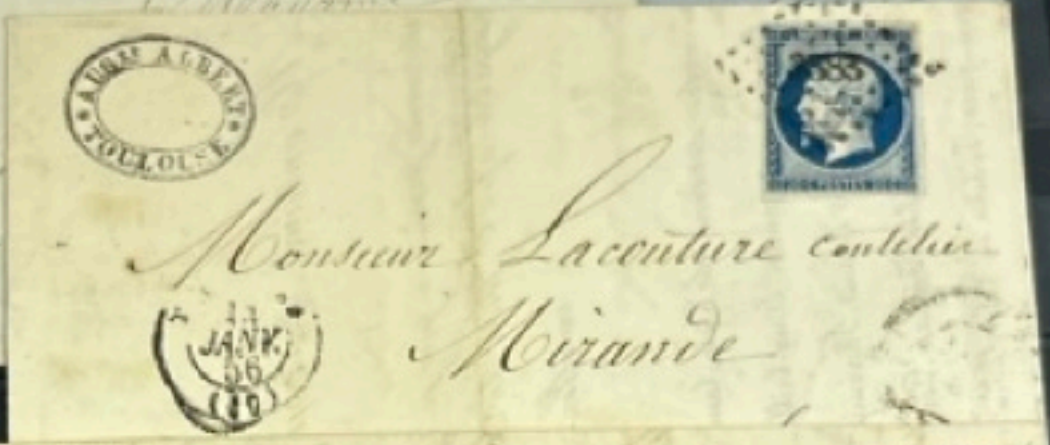 AUG.te ALBERT
TOULOUSE
Monsieur Lacouture coutelier
Mirande
JANV.
56